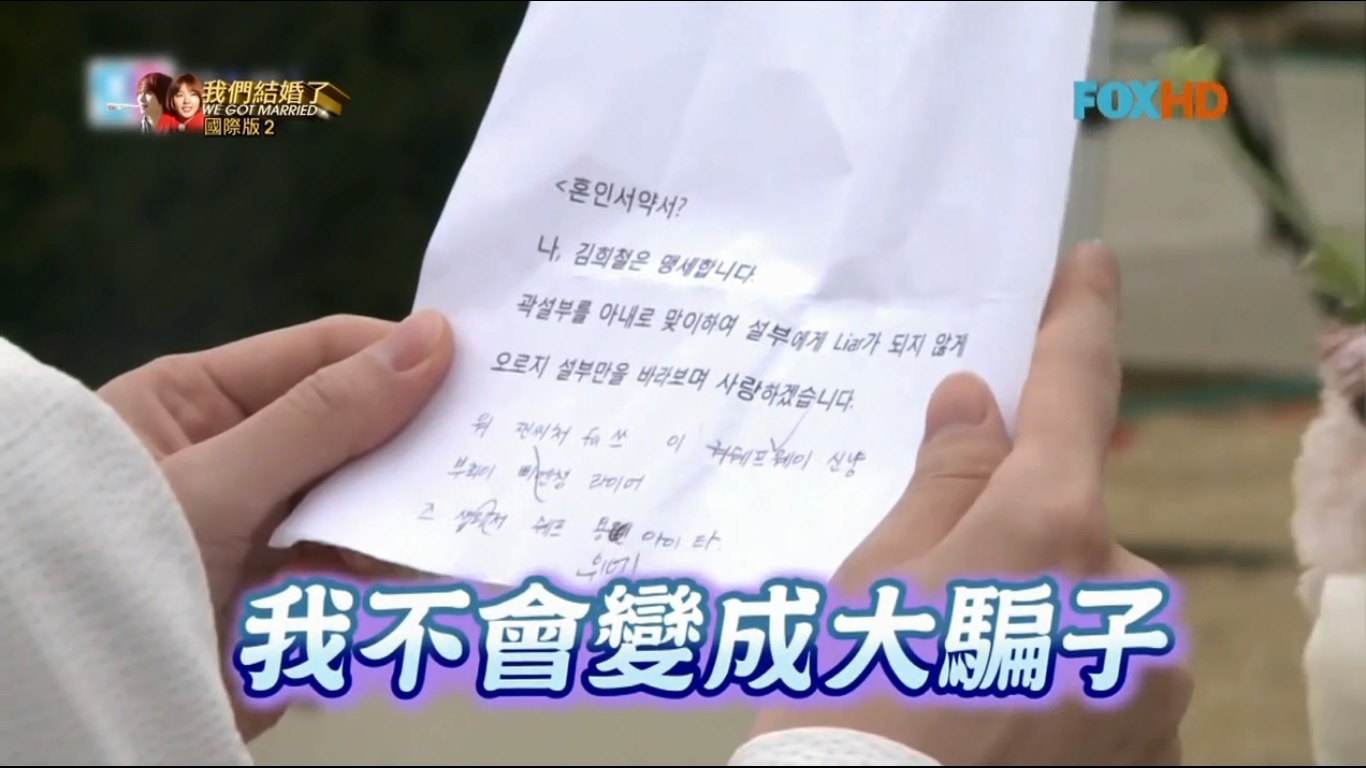 我們結婚了
WE GOT MARRIED
國際版 2
FOXHD
<혼인서약서?
나, 김희철은 맹세합니다.
곽설부를 아내로 맞이하여 설부에게 Liar가 되지 않게
오로지 설부만을 바라보며 사랑하겠습니다.
워 찐씨처 fa 쓰 이 쉐프 웨이 신냥
부회이 삐엔청 라이어
즈 쉐프 아이 타.
我不會變成大騙子